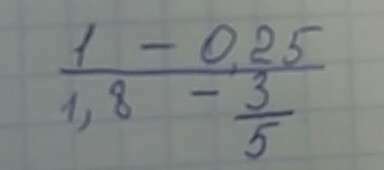 1 - 0,25
1,8 - 3
5